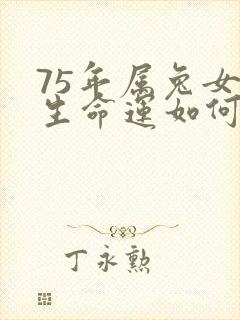 75年属兔女
生命运如何
丁永勲